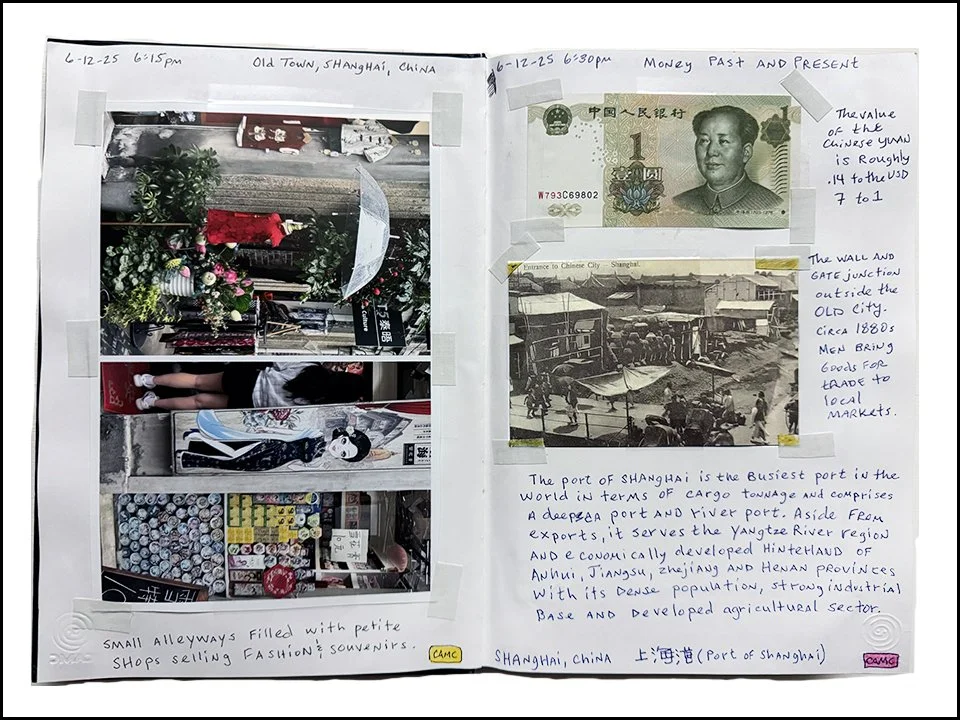 6-12-25 6:15pm
Old Town, SHANGHAI, CHINA
Culture
SMALL AlleywAys Filled with petite
SHOPS SellING FASHION & SOUVENIRS.
CAMC
6-12-25 6:30pm
MONEY PAST AND PRESENT
中国人民银行
1
壹圆
W793C69802
The value
OF the
CHINESE YUAN
is Roughly
.14 to the USD
7 to 1
Entrance to Chinese City — Shanghai.
The WALL AND
GATE junction
outside the
OLD City.
CIRCA 1880s
MEN BRING
Goods FOR
trade to
local
MARKETS.
The port of SHANGHAI is the Busiest port in the
World in terms of cargo tonnage and comprises
A deepsea port AND river port. Aside From
exports, it serves the YANGTZE River region
AND economically developed HINTERLAND OF
Anhui, Jiangsu, Zhejiang AND HENAN PROVINCES
With its Dense population, strong industrial
Base AND Developed agricultural sector.
SHANGHAI, CHINA 上海港 (Port of Shanghai)
CAMC